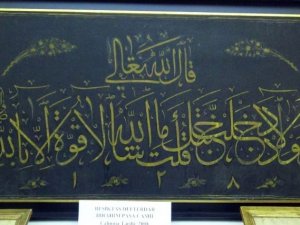 قال الله تعالى
ولولا إذ دخلت جنتك قلت ما شاء الله لا قوة إلا بالله
١ ٢ ٨
BEŞİKTAŞ DEFTERDAR
İBRAHİM PAŞA CAMİİ